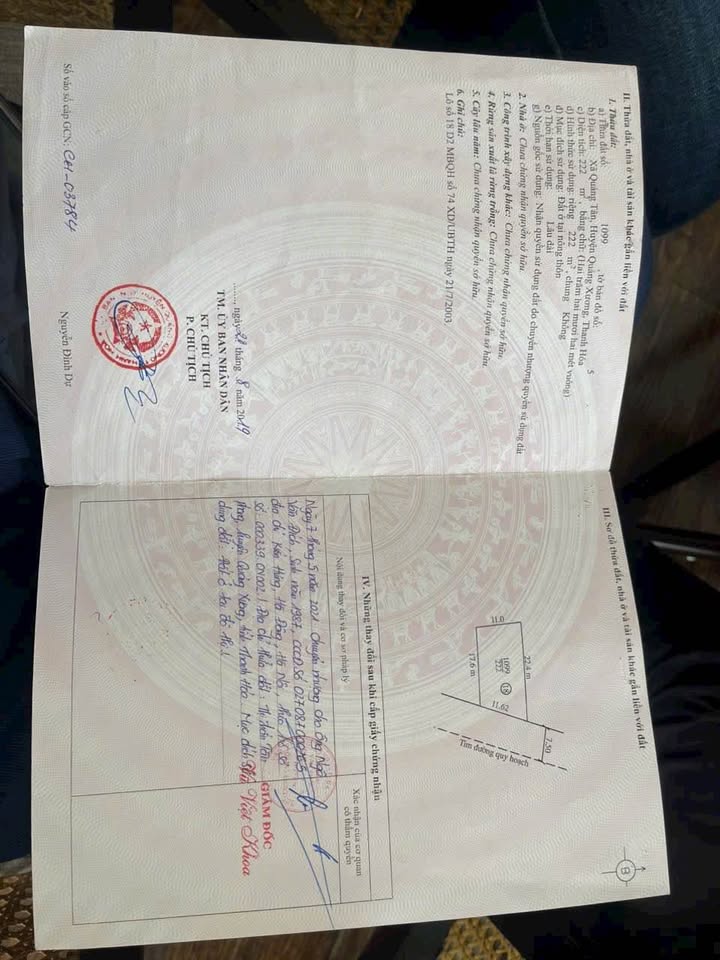 II. Thửa đất, nhà ở và tài sản khác gắn liền với đất
1. Thửa đất:
a) Thửa đất số: 1099 , tờ bản đồ số: 5
b) Địa chỉ: Xã Quảng Tân, Huyện Quảng Xương, Thanh Hóa
c) Diện tích: 222 m², bằng chữ: (Hai trăm hai mươi hai mét vuông)
d) Hình thức sử dụng: riêng 222 m², chung Không
đ) Mục đích sử dụng: Đất ở tại nông thôn
e) Thời hạn sử dụng: Lâu dài
g) Nguồn gốc sử dụng: Nhận quyền sử dụng đất do chuyển nhượng quyền sử dụng đất
2. Nhà ở: Chưa chứng nhận quyền sở hữu.
3. Công trình xây dựng khác: Chưa chứng nhận quyền sở hữu.
4. Rừng sản xuất là rừng trồng: Chưa chứng nhận quyền sở hữu.
5. Cây lâu năm: Chưa chứng nhận quyền sở hữu.
6. Ghi chú:
Lô số 18 D2 MBQH số 74 XD/UBTH ngày 21/7/2003.
......., ngày 21 tháng 8 năm 2019
TM. ỦY BAN NHÂN DÂN
KT. CHỦ TỊCH
P. CHỦ TỊCH
Nguyễn Đình Dự
Số vào sổ cấp GCN: CH-03784
III. Sơ đồ thửa đất, nhà ở và tài sản khác gắn liền với đất
B
22.4 m
11.0
1099
222
18
11.62
17.6 m
7.50
Tim đường quy hoạch
IV. Những thay đổi sau khi cấp giấy chứng nhận
Nội dung thay đổi và cơ sở pháp lý
Xác nhận của cơ quan
có thẩm quyền
Ngày 7 tháng 5 năm 2021 Chuyển nhượng cho Ông Ngô
Văn Đích, Sinh năm 1987, CCCD Số
địa chỉ Kiến Hưng, Hà Đông, Hà Nội, theo hồ sơ
số: 000339.CN.002. Địa chỉ thửa đất: Thị trấn Tân
Phong, huyện Quảng Xương, tỉnh Thanh Hóa. Mục đích sử
dụng đất: Đất ở tại đô thị./.
GIÁM ĐỐC
Việt Khoa